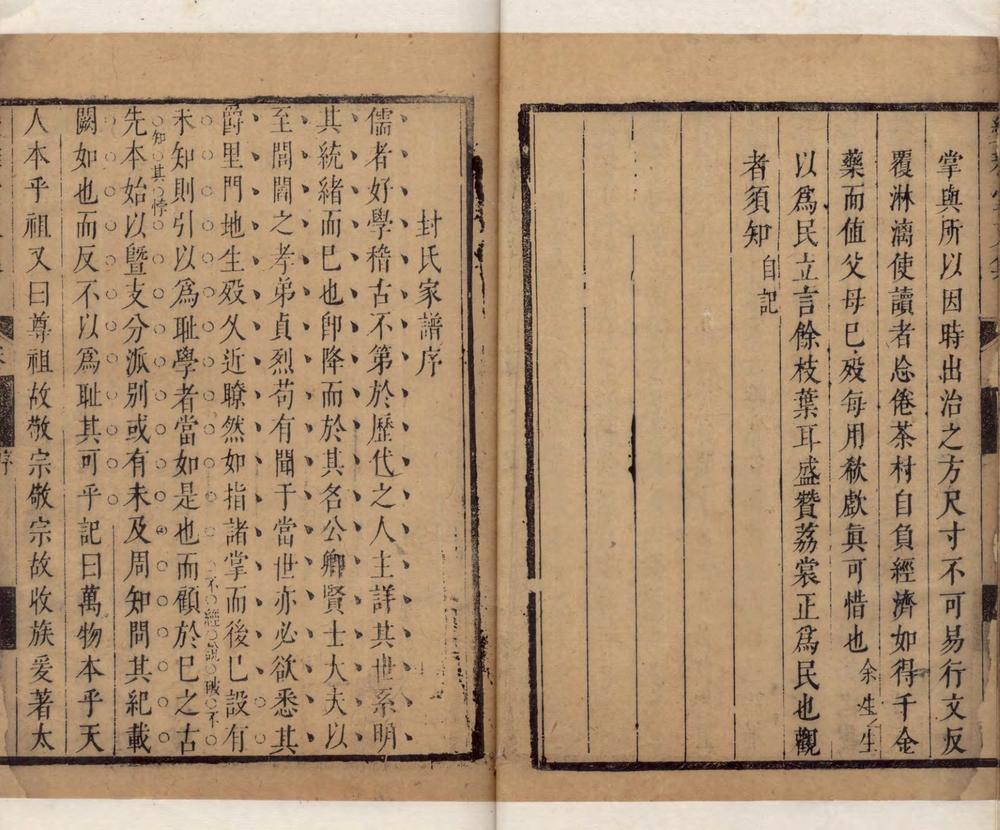 掌與所以因時出治之方尺寸不可易行文反
覆淋漓使讀者忘倦茶村自負經濟如得千金
藥而值父母已歿每用欷歔眞可惜也 余生生
以爲民立言餘枝葉耳盛贊荔裳正爲民也觀
者須知 自記
封氏家譜序
儒者好學稽古不第於歷代之人主詳其世系明
其統緒而已也卽降而於其名公卿賢士大夫以
至閭閻之孝弟貞烈苟有聞于當世亦必欲悉其
爵里門地生歿久近瞭然如指諸掌而後已設有
不經說破不
未知則引以爲恥學者當如是也而顧於已之古
知其悖
先本始以曁支分派別或有未及周知問其紀載
闕如也而反不以爲恥其可乎記曰萬物本乎天
人本乎祖又曰尊祖故敬宗敬宗故收族爰著太
序